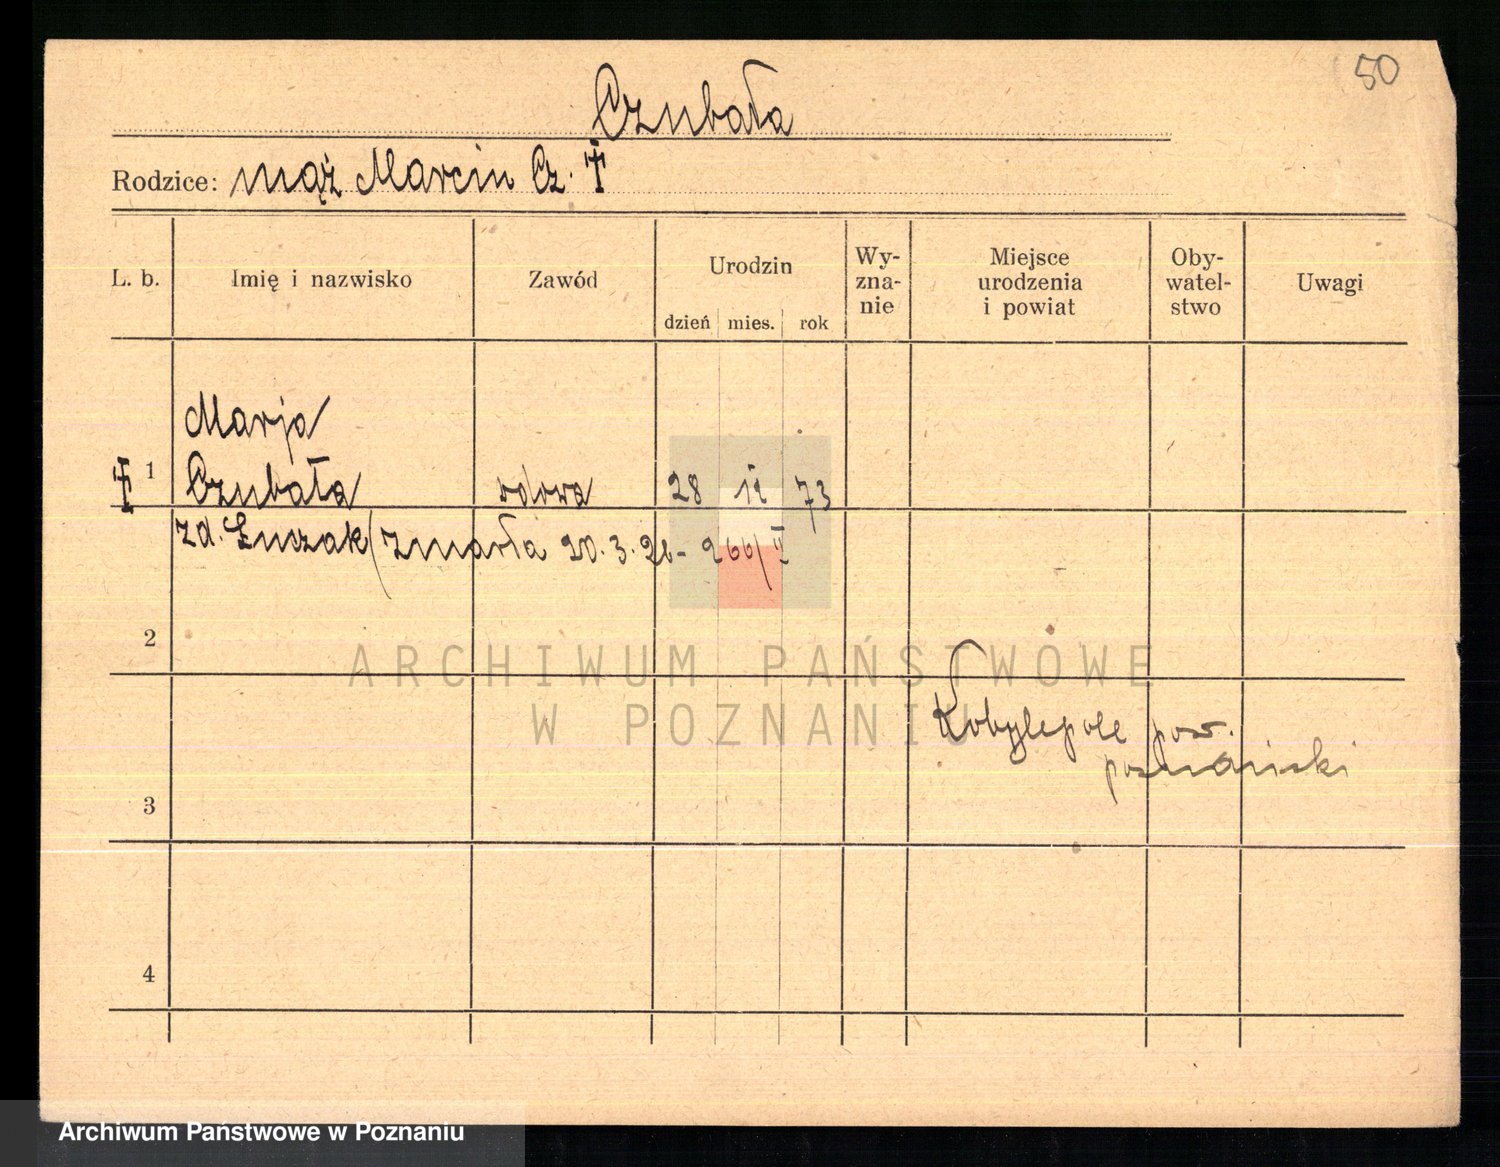 50
Czubała
Rodzice: mąż Marcin Cz. †
L. b. Imię i nazwisko Zawód Urodzin dzień mies. rok Wy-zna-nie Miejsce urodzenia i powiat Oby-watel-stwo Uwagi
Marja
† 1 Czubała wdowa 28 12 73
zd. Łuczak / zmarła 20.3.26 - 266/II
2
ARCHIWUM PAŃSTWOWE
W POZNANIU
Kobylepole pow.
poznański
3
4
Archiwum Państwowe w Poznaniu